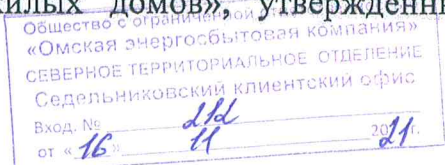 жилых домов», утвержденн
Общество с ограниченной
«Омская энергосбытовая компания»
СЕВЕРНОЕ ТЕРРИТОРИАЛЬНОЕ ОТДЕЛЕНИЕ
Седельниковский клиентский офис
Вход. № 212
от «16» 11 2021г.